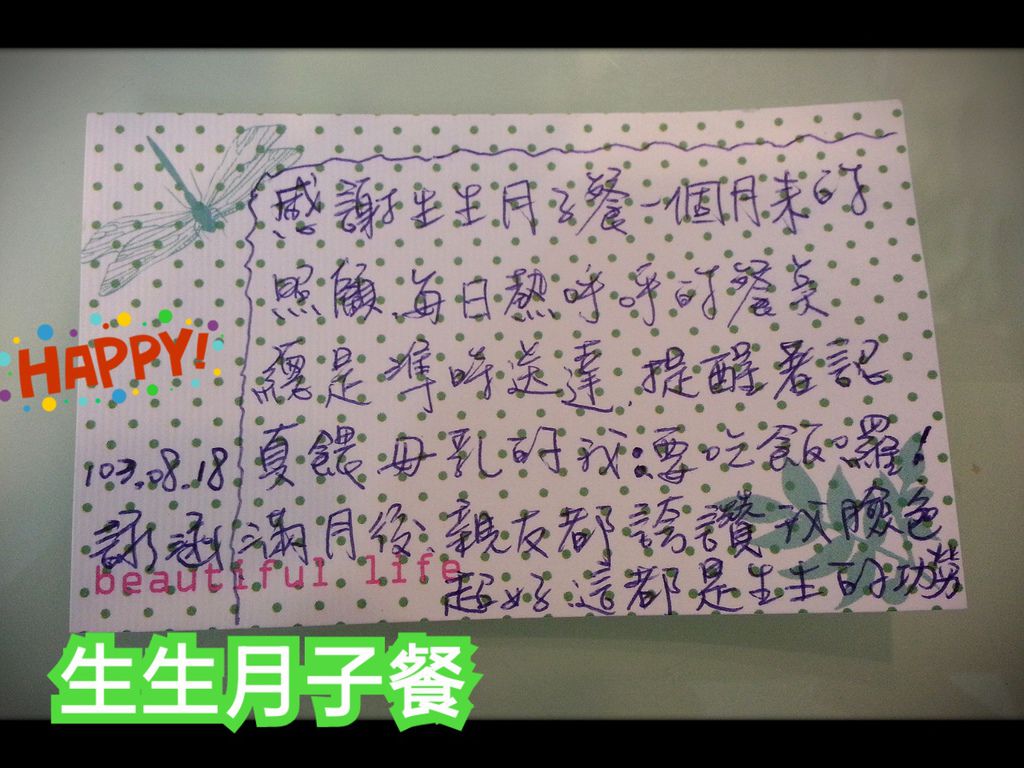 感謝生生月子餐一個月來的
照顧.每日熱呼呼的餐點
總是準時送達.提醒著認
真餵母乳的我:要吃飯囉!
滿月後 親友都誇讚我臉色
超好.這都是生生的功勞
103.08.18
詠涵
beautiful life
HAPPY!
生生月子餐